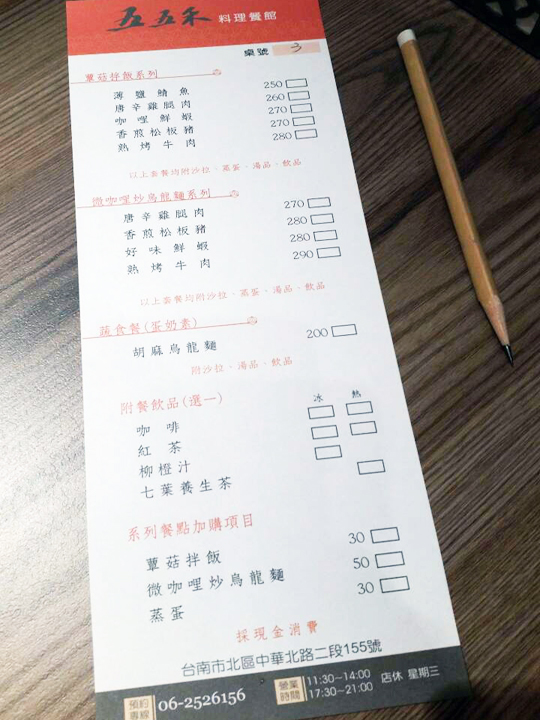 五五禾 料理餐館
桌號 3
蕈菇拌飯系列
薄鹽鯖魚 250
唐辛雞腿肉 260
咖哩鮮蝦 270
香煎松板豬 270
熟烤牛肉 280
以上套餐均附沙拉、蒸蛋、湯品、飲品
微咖哩炒烏龍麵系列
唐辛雞腿肉 270
香煎松板豬 280
好味鮮蝦 280
熟烤牛肉 290
以上套餐均附沙拉、蒸蛋、湯品、飲品
蔬食餐(蛋奶素)
胡麻烏龍麵 200
附沙拉、湯品、飲品
附餐飲品(選一) 冰 熱
咖啡
紅茶
柳橙汁
七葉養生茶
系列餐點加購項目
蕈菇拌飯 30
微咖哩炒烏龍麵 50
蒸蛋 30
採現金消費
台南市北區中華北路二段155號
預約專線 06-2526156 營業時間 11:30~14:00 店休 星期三
17:30~21:00